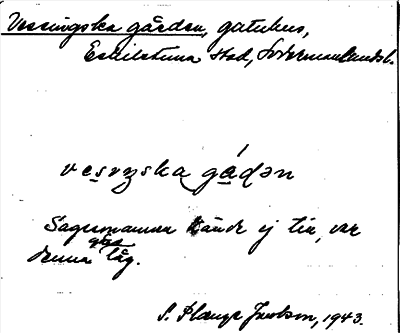 Vessingska gården, gatuhus,
Eskilstuna stad, Södermanlandsl.
vesıŋska gádən
Sagesmannen kände ej till, var
denna gård låg.
S. Plange Jacobson, 1943.